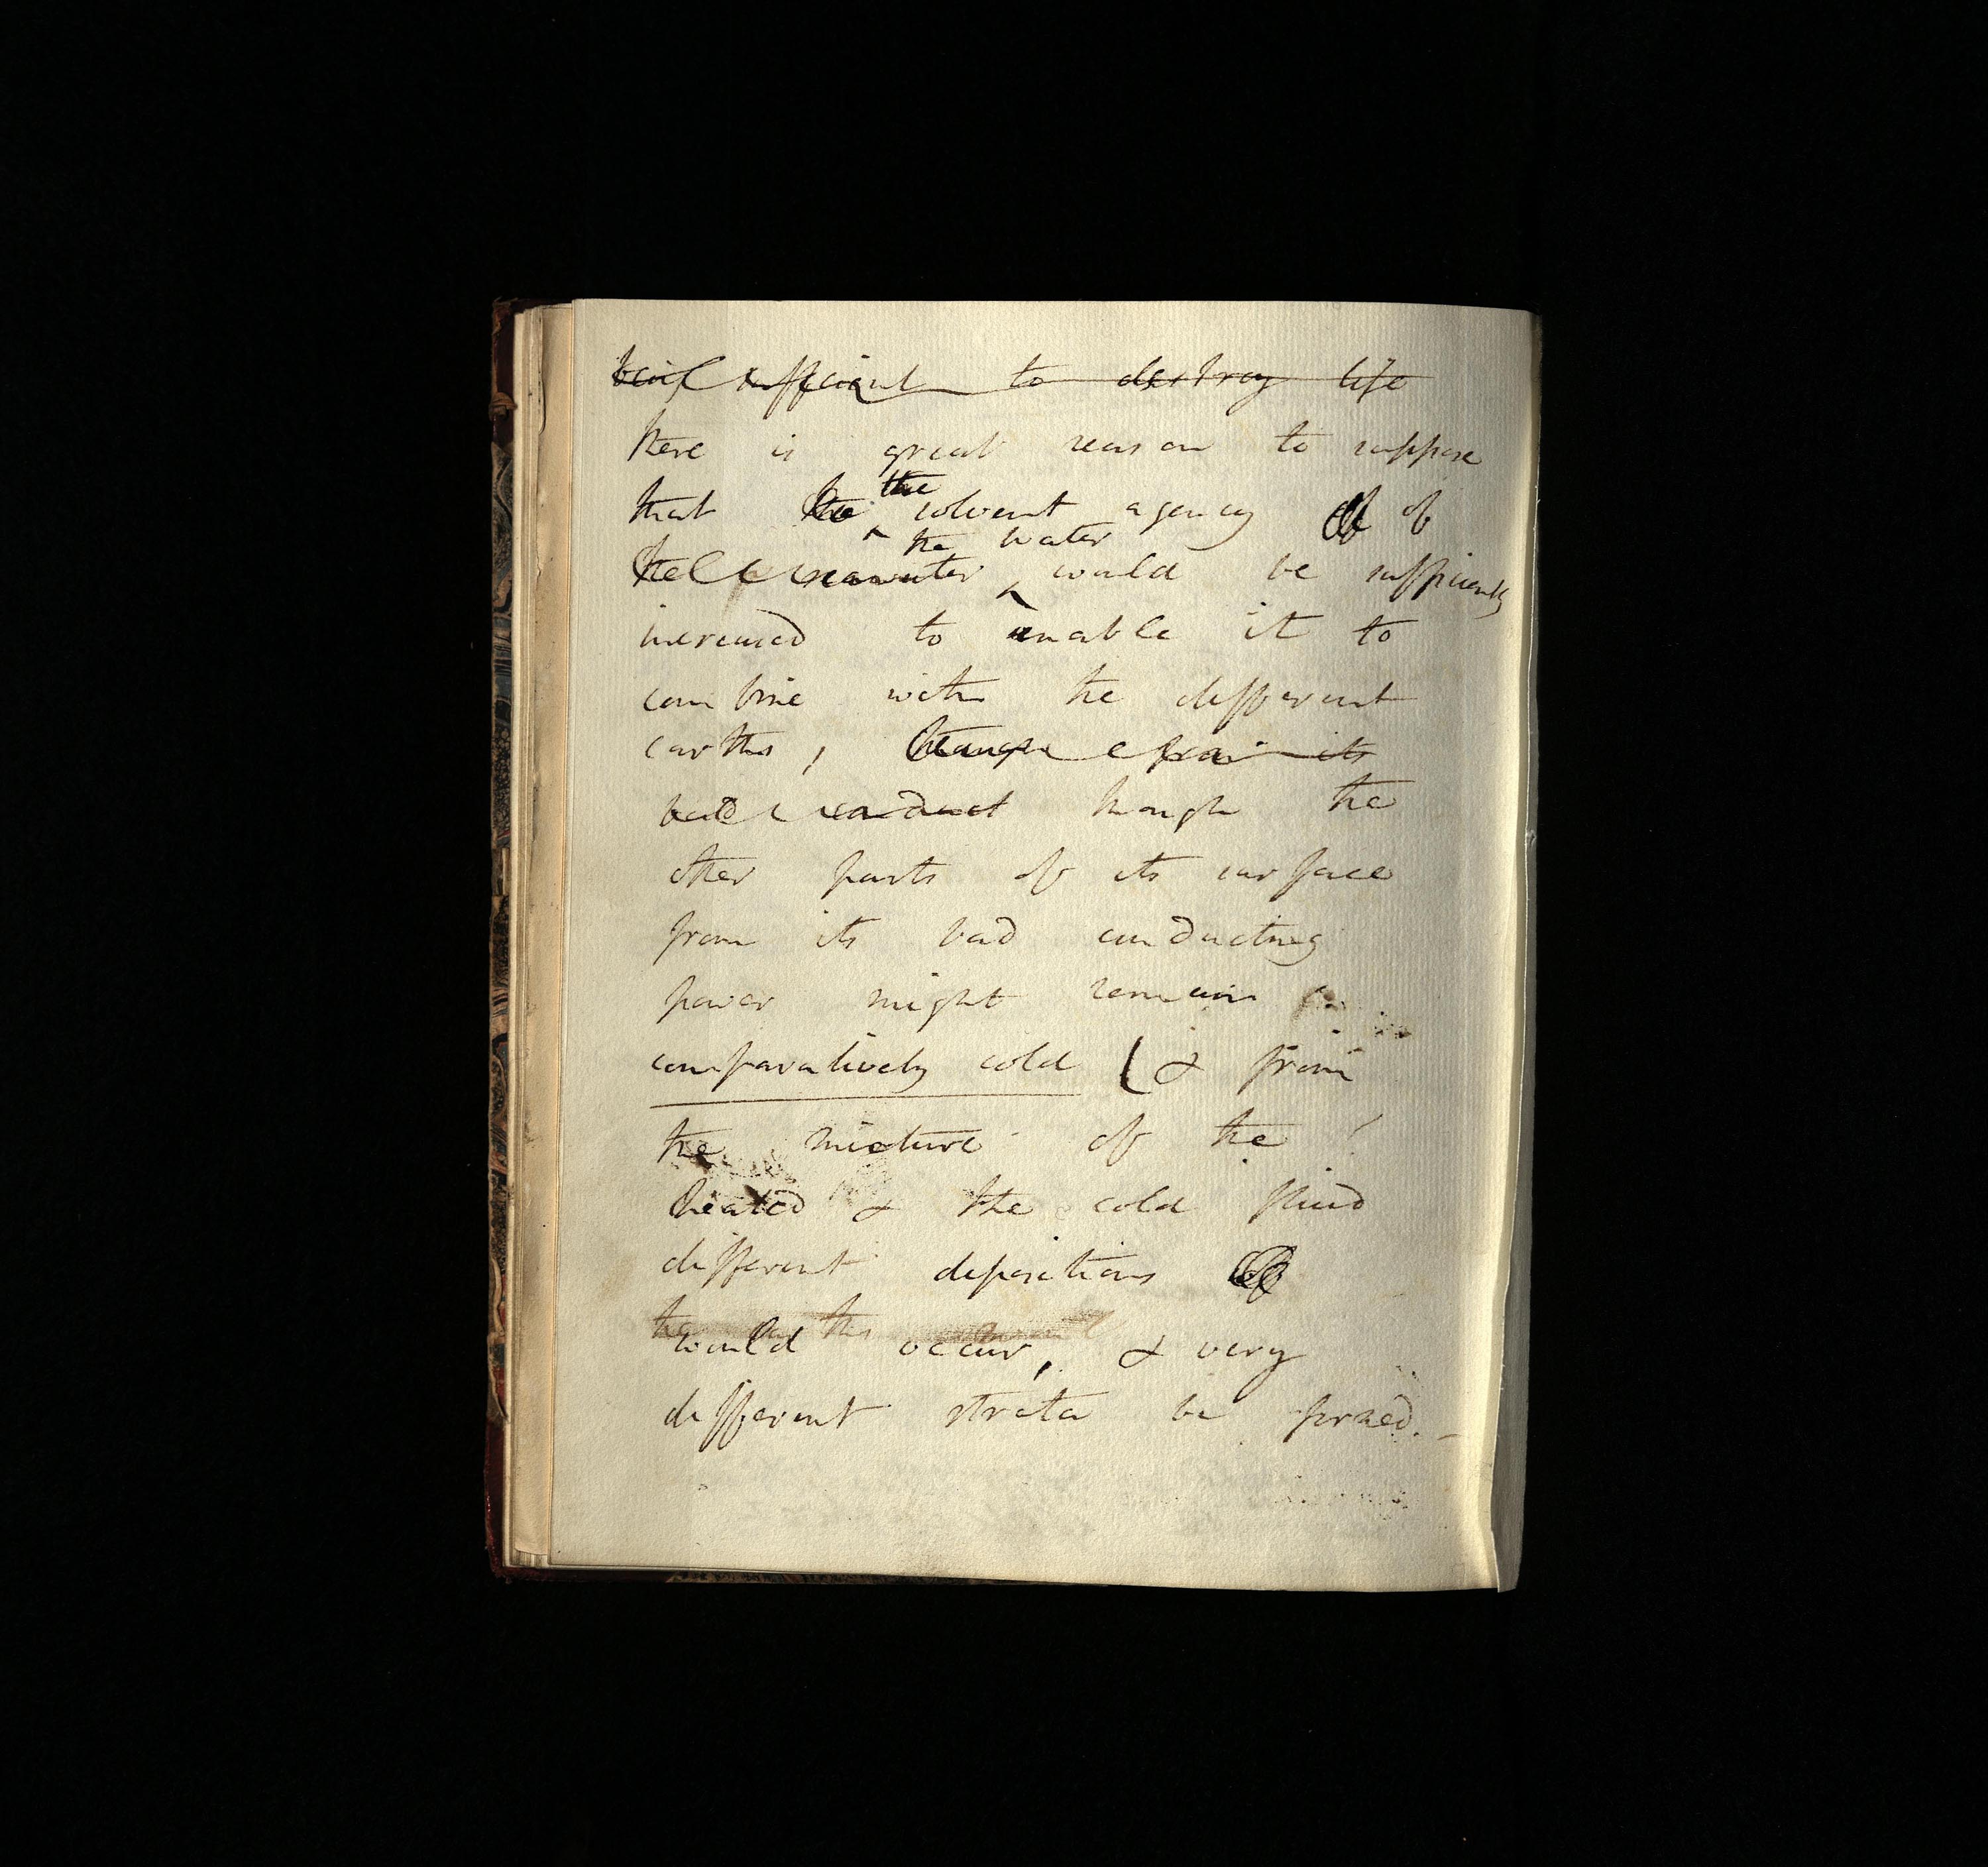 being sufficient to destroy life
there is great reason to suppose
the
that the solvent agency of of
the water
the seawater would be sufficiently
increased to enable it to
combine with the different
earths, though from its
bad conduct though the
other parts of its surface
from its bad conducting
power might remain
comparatively cold ( & from
the mixture of the
heated & the cold fluid
different depositions
the earths
would occur, & very
different strata be formed. -